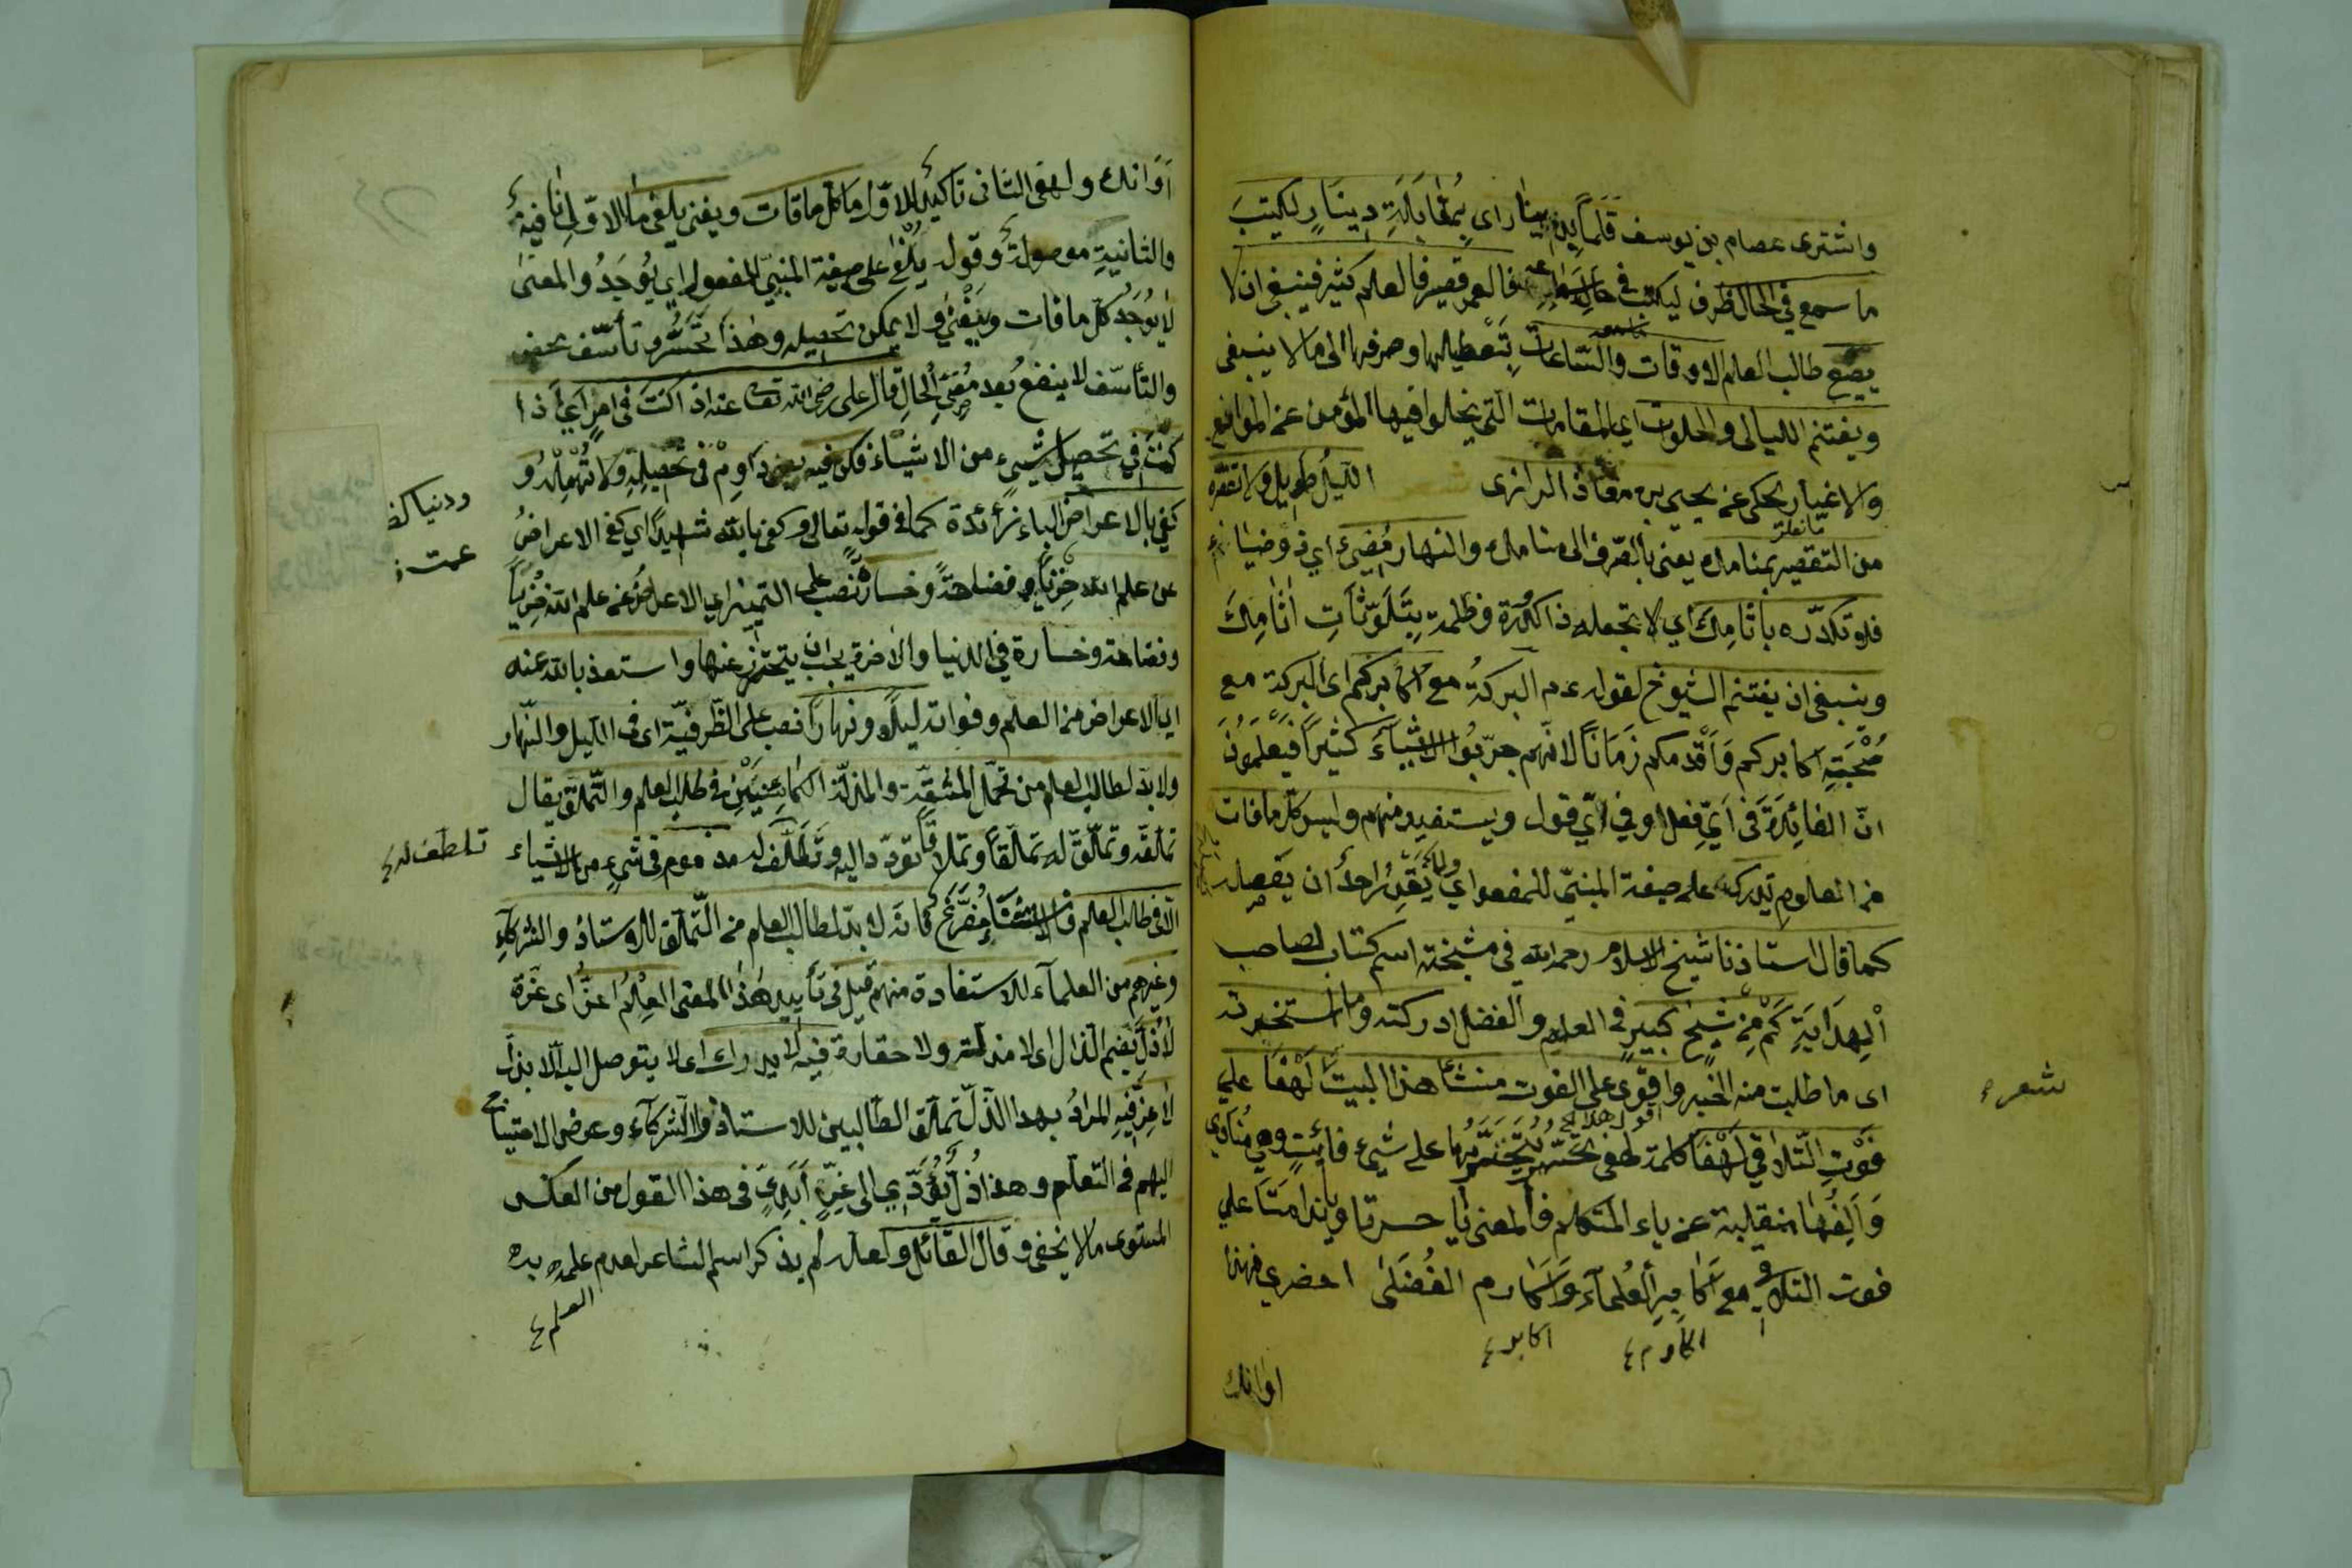 واشترى عصام بن يوسف قَلَماً بدينار اى بِمُقَابَلَةِ دِينَارٍ ليكتبَ
ما سمع فى الحال ظرف ليكتب فى فالعمر قصير فالعلم كثير فينبغى ان لا
يضيع طالب العلم الاوقات والسّاعات بِتَعطيلها وصرفها الى ما لا ينبغى
ويغتنم الليالى والخلوات اى المقامات التى يخلوا فيها المؤمن عن الموانع
والاغيار يحكى عن يحيى بن معاذ الرازى الليل طويل ولا تقصره
من التقصير بمنامك يعنى بالصّرف الى منامك والنهار مُضِىء اى ذو ضياء
فلا تكدّره بآثامِكَ اى لا تجعله ذا كُدْرَة وظلمة بِتَلَوّثاتِ اثامِكَ
وينبغى ان يغتنم الشيوخ لقوله ع م البركةُ مع اكابركم اى البركة مع
صُحْبَةِ اكابركم وَاَقْدمكم زَمَاناً لانّهم جرّبُوا الاشياءَ كثيراً فَيَعْلَمُونَ
انّ الفائِدَةَ فى اَىِّ فِعلٍ او فى اىّ قول ويستفيد منهم وليس كلّ ما فات
من العلوم يدرك على صيغة المبنىّ للمفعول اى ولا يَقْدِرُ احدٌ ان يحصله
كما قال استاذنا شيخ الاسلام رحمه الله فى مشيخته اسم كتاب لصاحب
اَلْهِدَايَةِ كَمْ مِنْ شيخٍ كبيرٍ فى العلم والفضل ادركته وما استخبرته
شعر
اى ما طلبت منه الخبر واقوّى على الفوت منشئا هذا البيت لَهْفًا على
فَوْتِ التّلاقى لَهْفَا كلمة لهفى يُتَحَسَّرُ بها على شىء فائتٍ وهى مُنَادى
وَاَلِفُها منقلبة عن ياء المتكلم فالمعنى يا حسرتا ويا نَدامَتَا على
فوت التلاقى مع اكابِرِ اَلعُلماَءِ وَاَكارم الفُضَلى احضرى فهذا
اكارم
اكابر
اوانك
اَوَانك ولهفى الثانى تاكيدٌ للاوّل ما كل ما فات ويفنى يلفى ما الاوّلى نافية
والثانيةِ موصولةٌ وقوله يُلْفى على صيغة المبنىّ للمفعول اى يُوجَدُ والمعنى
لا يُوجَدُ كلّ ما فات وَيَفْنى ولا يمكن تحصيله وهذا تَحَسُّر وتأسّف محض
والتأسّف لا ينفع بعد مُضِىّ الحالِ قال على رضى الله تعا عنه اذا كنتَ فى امرٍ اَىْ اذا
كنتَ فى تحصيل شىء من الاشياء فكن فيه يعنى داوِمْ فى تَحْصِيلِهِ ولا تُهْمِلْهُ و
كفى بالاعراض الباء زائدة كما فى قوله تعالى وكفى بالله شهيداً اى كفى الاعراضُ
ودنيا
عن علم الله خِزْياً و فضاحةً وخسارةً نُصِب على التميز اى الاعراض عن علم الله خِزياً
وفضاحة وخسارة فى الدنيا والاخرة يجب ان يتحرّز عنها واستعذ بالله عنه
اى الاعراض من العلم وفواته ليلاً ونهاراً نصب على الظّرفيّة اى فى الليل والنّهار
ولا بدّ لطالب العلم من تحمّل المشقّة والمذلّة الكائِنَتَيْنِ فى طلب العلم والتّملّق يقال
تملّقه وتملّق له تملّقاً وتملاقاً تودّد اليه وتَطَلّفَ له مذموم فى شىء من الاشياء
تلطف له
الّا فى طلب العلم فالاستثنا مُفَرَّغ فانه لا بدّ لطالب العلم من التّملّق للاستاذ والشركاءِ
وغيرهم من العلماء للاستفادة منهم قيل فى تأييد هذا المعنى العِلمُ عزٌّ اى عَزّة
لا ذُلَّ بضم الذال اى لا مذلة ولا حقارة فيه لا يدرك اى لا يتوصل اليه الّا بذلٍّ
لا عِزَّ فيهِ المرادُ بهذا الذّلّ تملّق الطّالبين للاستاذ والشركاء وعرض الاحتياج
اليهم فى التعلّم وهذا ذلٌّ يُؤدّى الى عِزٍّ اَبَدِىٍّ فى هذا القول من العكس
المستوى ما لا يخفى وقال القائل ولعله لم يذكر اسم الشاعر لعدم علمه به
العلم